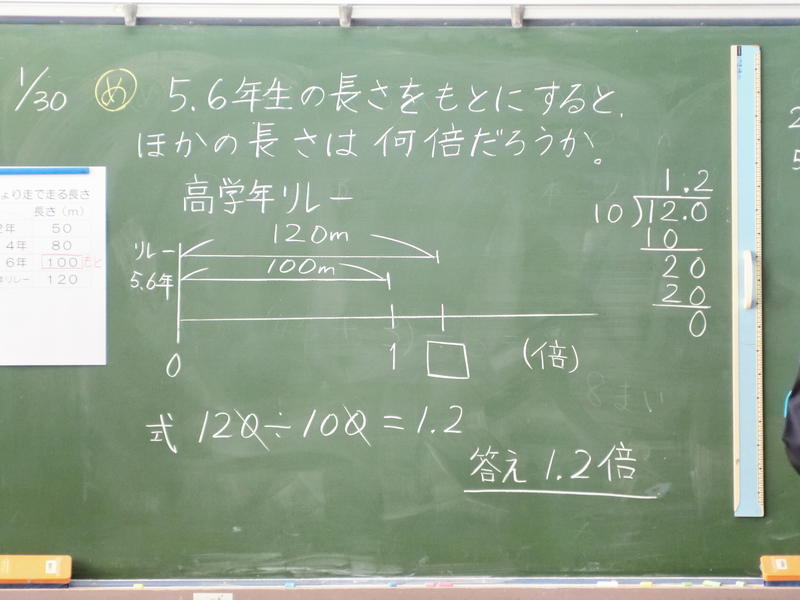 1/30
め 5.6年生の長さをもとにすると、
ほかの長さは何倍だろうか。
ょり走で走る長さ
長さ(m)
2年 50
4年 80
6年 100 もと
リレー 120
高学年リレー
リレー 120m
5.6年 100m
0 1 □ (倍)
式 120÷100=1.2
答え 1.2倍
1.2
10)12.0
10
20
20
0